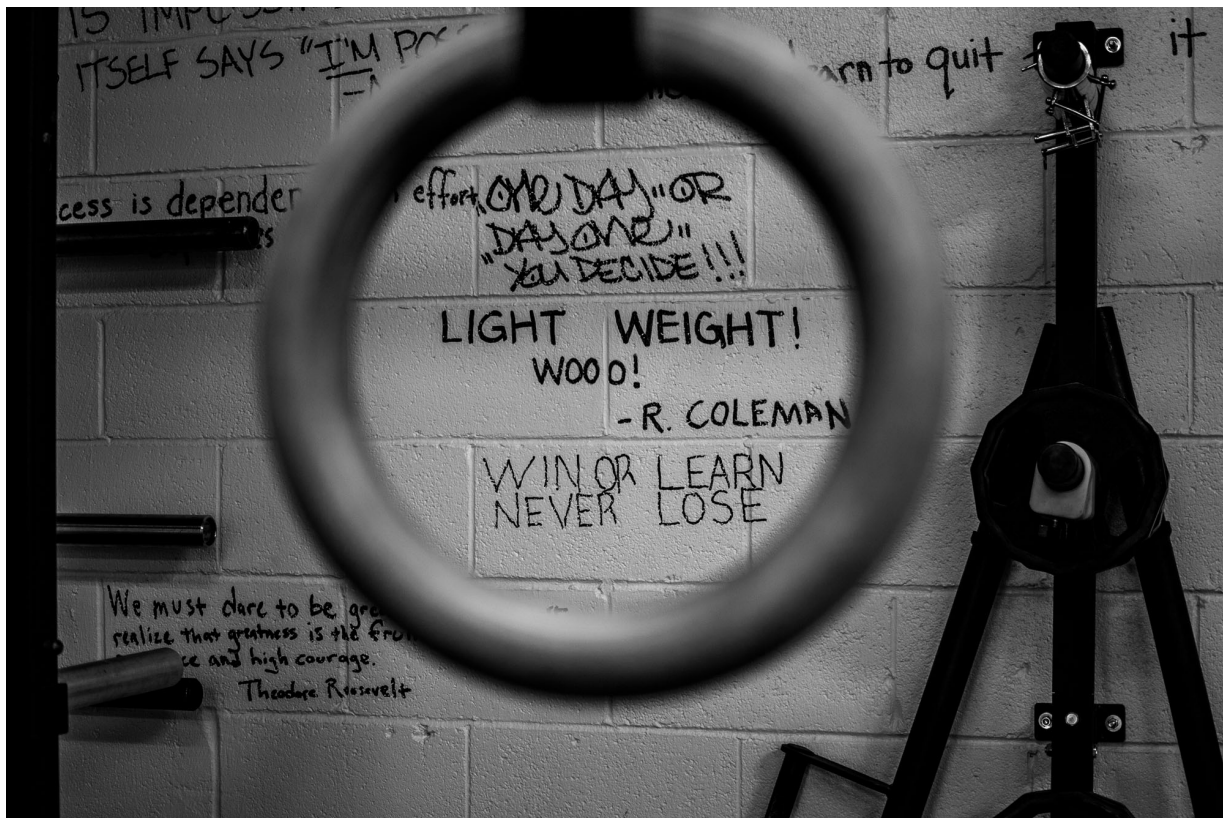 IS
ITSELF SAYS "I'M
to quit
it
is
effort
"ONE DAY" OR
"DAY ONE"
YOU DECIDE!!!
LIGHT WEIGHT!
WOOO!
-R. COLEMAN
WIN OR LEARN
NEVER LOSE
We must dare to be
realize that greatness is the
and high courage.
Theodore Roosevelt